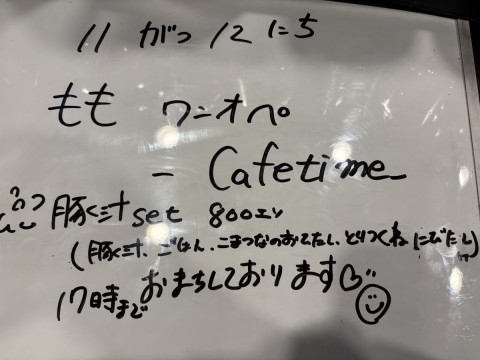 11 がつ 12 にち
もも ワンオペ
- Cafetime
豚汁set 800エン
(豚汁、ごはん、こまつなのおひたし、とりつくねにびたし)
17時まで おまちしております♡